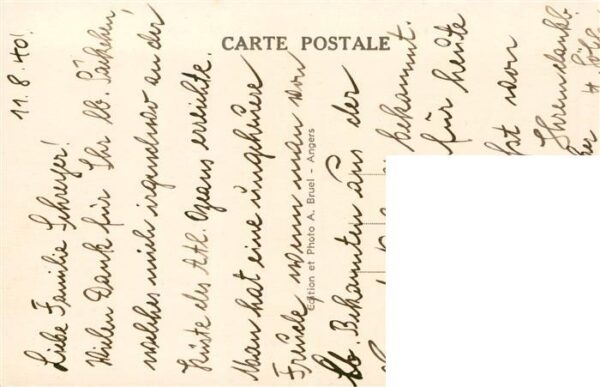 CARTE POSTALE
11.8.40!
Liebe Familie Schreyer!
Vielen Dank für Ihr lb. Päckchen,
welches mich irgendwo an der
Küste des Atl. Ozeans erreichte.
Man hat eine ungeheuere
Freude wenn man von
lb. Bekannten aus der
bekommt.
für heute
von
Ihrem dankb.
Edition et Photo A. Bruel - Angers